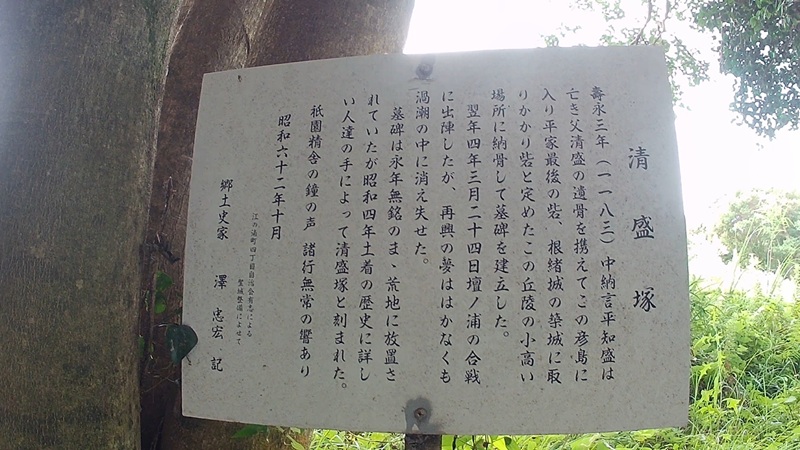 清盛塚
壽永三年（一一八三）中納言平知盛は
亡き父清盛の遺骨を携えてこの彦島に
入り平家最後の砦、根緒城の築城に取
りかかり砦と定めたこの丘陵の小高い
場所に納骨して墓碑を建立した。
翌年四年三月二十四日壇ノ浦の合戦
に出陣したが、再興の夢ははかなくも
渦潮の中に消え失せた。
墓碑は永年無銘のまゝ荒地に放置さ
れていたが昭和四年土着の歴史に詳し
い人達の手によって清盛塚と刻まれた。
祇園精舎の鐘の声 諸行無常の響あり
昭和六十二年十月
江の浦町四丁目自治会有志による
聖域整備によせて
郷土史家 澤 忠宏 記